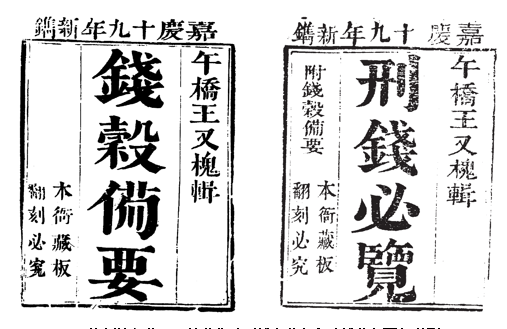 嘉慶十九年新鐫
午橋王又槐輯
刑錢必覽
附錢穀備要
本衙藏板
翻刻必究
嘉慶十九年新鐫
午橋王又槐輯
錢穀備要
本衙藏板
翻刻必究